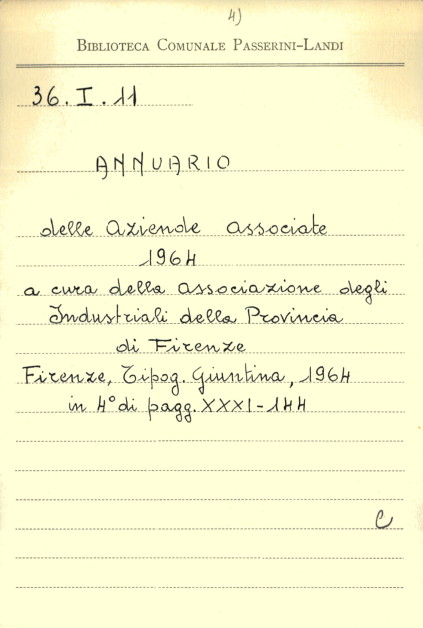 4)
BIBLIOTECA COMUNALE PASSERINI-LANDI
36. I. 11
ANNUARIO
delle Aziende associate
1964
a cura della Associazione degli
Industriali della Provincia
di Firenze
Firenze, Tipog. Giuntina, 1964
in 4° di pagg. XXXI-144
C